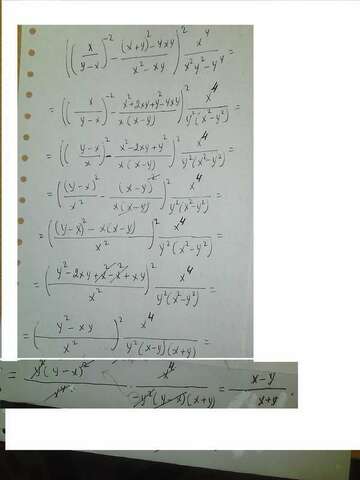 ((x/(y-x))^-2 - ((x+y)^2-4xy)/(x^2-xy))^2 x^4/(x^2y^2-y^4) =
= ((x/(y-x))^-2 - (x^2+2xy+y^2-4xy)/(x(x-y)))^2 x^4/(y^2(x^2-y^2)) =
= (((y-x)/x)^2 - (x^2-2xy+y^2)/(x(x-y)))^2 x^4/(y^2(x^2-y^2)) =
= ((y-x)^2/x^2 - (x-y)^2/(x(x-y)))^2 x^4/(y^2(x^2-y^2)) =
= (((y-x)^2-x(x-y))/x^2)^2 x^4/(y^2(x^2-y^2)) =
= ((y^2-2xy+x^2-x^2+xy)/x^2)^2 x^4/(y^2(x^2-y^2)) =
= ((y^2-xy)/x^2)^2 x^4/(y^2(x-y)(x+y)) =
= y^2(y-x)^2/x^4 x^4/(-y^2(y-x)(x+y)) = (x-y)/(x+y)